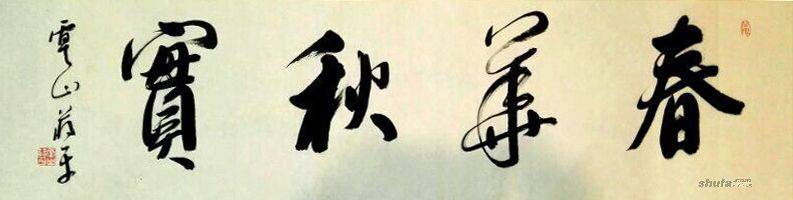 春華秋實
雲山蔣平
shufa